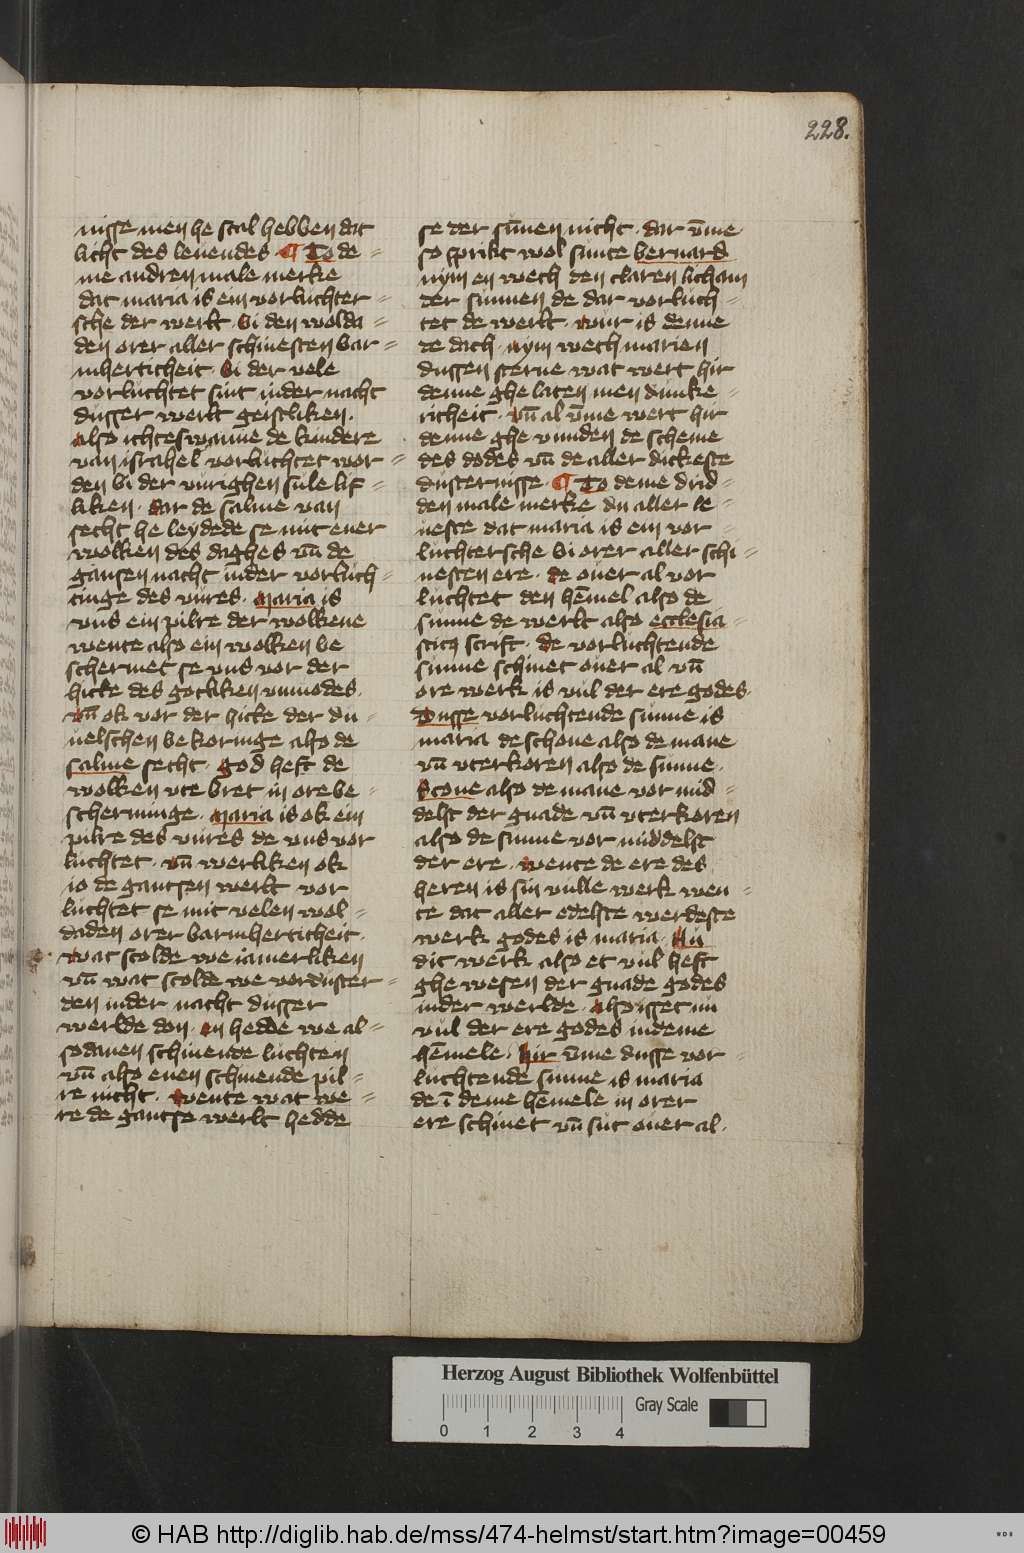 228.
nisse men he scal hebben dat
licht des leuendes · ¶ To de=
me andren male merke
dat maria is ein vorluchter=
sche der werlt · bi den wolda=
den orer aller schinesten bar=
mherticheit · bi der vele
vorluchtet sint in der nacht
dusser werlt geistliken ·
also ichteswanne de kindere
van israhel vorluchtet wor=
den bi der vurighen sule lif=
liken · dar de salme van
secht he leydede se mit ener
wolken des daghes vn̄ de
gansen nacht in der vorluch=
tinge des vures · maria is
vns ein pilre der wolkene
wente also ein wolken be
schermet se vns vor der
hitte des gotliken vnmodes ·
vn̄ ok vor der hitte der du=
uelschen bekoringe also de
salme secht · god heft de
wolken vte bret in ore be=
scherminge · maria is ok ein
pilre des vures de vns vor
luchtet · vn̄ werliken ok
io de gantsen werlt vor
luchtet se mit velen wol=
daden orer barmherticheit ·
wat scolde we iamerliken
vn̄ wat scolde we vorduster=
den in der nacht dusser
werlde don · en hedde we al=
sodanen schinende luchten
vn̄ also enen schinende pil=
re nicht · wente wat we=
re de gantse werlt hedde
se der sūnen nicht · dar v̄me
so sprikt wol sunte bernard
nym en wech den claren licham
der sunnen de dar vorluch=
tet de werlt · wur is denne
de dach · nym wech marien
dussen sterne wat wert hir
denne ghe laten men dunke=
richeit · vn̄ al v̄me wert hir
denne ghe vunden de scheme
des dodes vn̄ de aller dickeste
dusternisse · ¶ To deme drid=
den male merke du aller le=
ueste dat maria is ein vor=
luchtersche bi orer aller schi=
nesten ere · de ouer al vor
luchtet den hēmel also de
sunne de werlt also ecclesia=
sticꝰ scrift · de vorluchtende
sunne schinet ouer al vn̄
ore werk is vul der ere godes ·
Dusse vorluchtende sunne is
maria de schone also de mane
vn̄ vterkoren also de sunne ·
Scone also de mane vor mid=
delst der gnade vn̄ vterkoren
also de sunne vor middelst
der ere · wente de ere des
heren is sin vulle werk wen=
te dat aller edelste werdeste
werk godes is maria · Nu
dit werk also et vul heft
ghe wesen der gnade godes
in der werlde · also isset nu
vul der ere godes in deme
hēmele · hir v̄me dusse vor=
luchtende sunne is maria
de ī deme hēmele in orer
ere schinet vn̄ sut ouer al ·
Herzog August Bibliothek Wolfenbüttel
Gray Scale
0 1 2 3 4
© HAB http://diglib.hab.de/mss/474-helmst/start.htm?image=00459